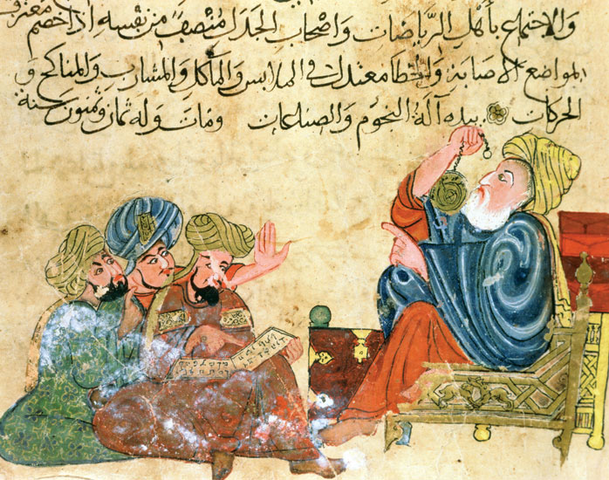 والاجتماع بأهل الرياضات واصحاب الجدل منصف من نفسه اذا خصم معترف
لمواضع الاصابة والخطا معتدل في الملابس والمآكل والمشارب والمناكح و
الحركات بيده آلة النجوم والصناعات ومات وله ثمان وثمنون سنة